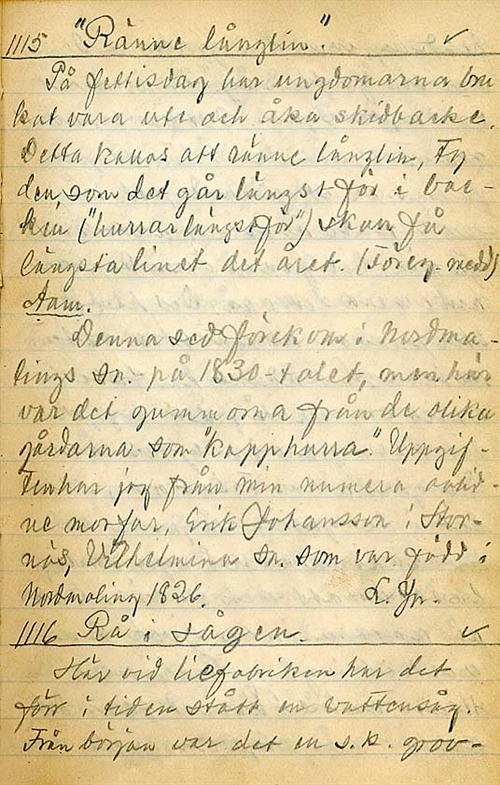 1115 "Ränne långlin". ✓
På fettisdag har ungdomarna bru
kat vara ute och åka skidbacke.
Detta kallas att ränne långlin, Ty
den, som det går längst för i bac-
ken ("hurrar längst för") skall få
längsta linet det året. (Föreg. medd)
Åam.
Denna sed förekom i Nordma-
lings sn. på 1830-talet, men här
var det gummorna från de olika
gårdarna som "kapphurra". Uppgif-
ten har jag från min numera avlid-
ne morfar, Erik Johansson i Stor-
näs, Vilhelmina sn. som var född i
Nordmaling 1826. L. Yr.
1116 Rå i sågen. ✓
Här vid liefabriken har det
förr i tiden stått en vattensåg.
Från början var det en s.k. grov-